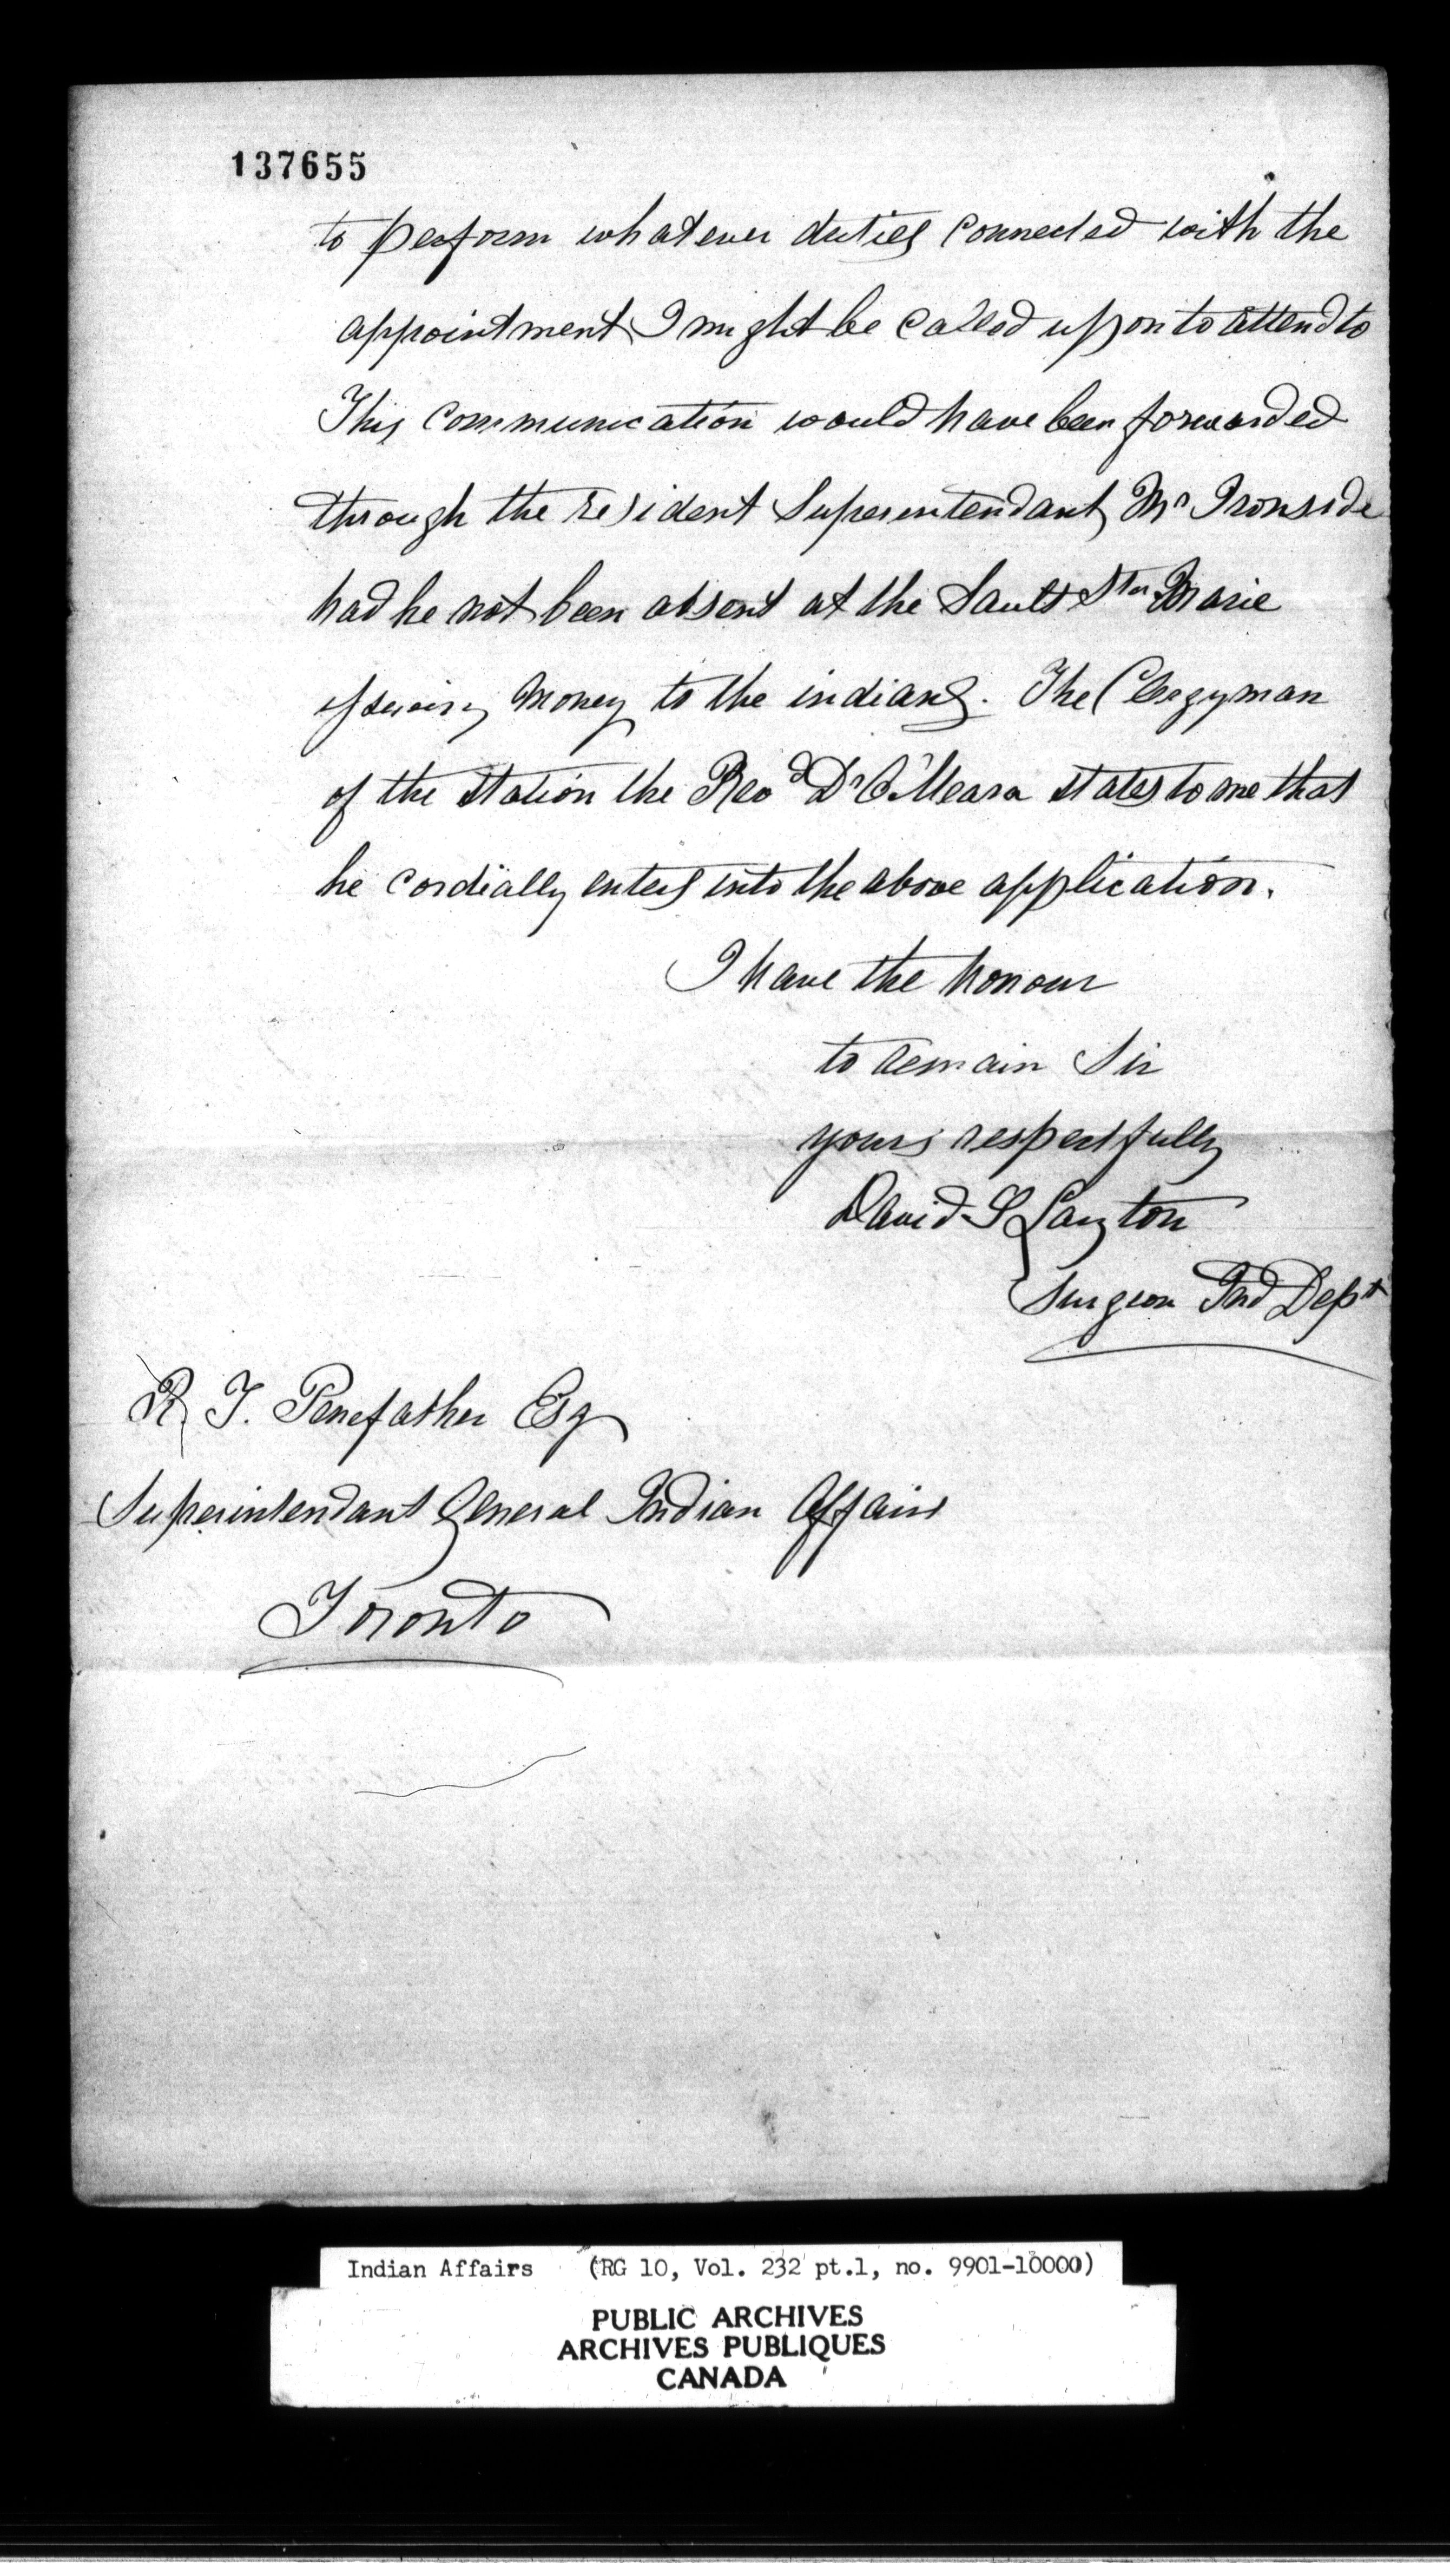 137655
to perform whatever duties connected with the
appointment I might be called upon to attend to
This communication would have been forwarded
through the resident Superintendant, Mr Ironside
had he not been absent at the Sault Ste Marie
issuing money to the indians. The Clergyman
of the station the Revd Dr O'Meara states to me that
he cordially enters into the above application.
I have the honour
to remain Sir
yours respectfully
David S Layton
Surgeon Ind Dept
R. T. Penefather Esq
Superintendant General Indian Affairs
Toronto
Indian Affairs (RG 10, Vol. 232 pt.1, no. 9901-10000)
PUBLIC ARCHIVES
ARCHIVES PUBLIQUES
CANADA